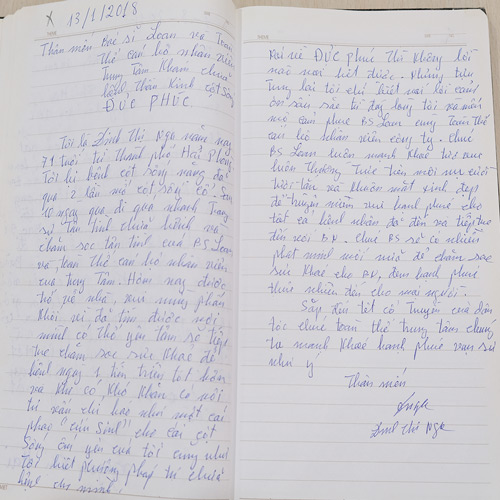 x 13/1/2018
Thân mến Bác sĩ Loan và Toàn
thể cán bộ nhân viên
Trung Tâm Khám chữa
bệnh Thần Kinh Cột Sống
ĐỨC PHÚC
Tôi là Đinh Thị Nga năm nay
71 tuổi từ Thành phố Hải Phòng
Tôi bị bệnh cột sống nặng đã
qua 2 lần mổ cột sống cổ
10 ngày qua đi qua nhanh trong
sự tận tình chữa bệnh và
chăm sóc tận tình của BS Loan
và toàn thể cán bộ nhân viên
của trung Tâm. Hôm nay được
trở về nhà, vui mừng phấn
khởi vì đã tìm được nơi
mình có thể yên tâm sẽ tiếp
tục chăm sóc sức khoẻ để
bệnh ngày 1 tiến triển tốt hơn
và khi có khó khăn có nơi
tư vấn chỉ bảo như một cái
phao "cứu sinh" cho cái cột
sống ốm yếu của tôi cũng như
Tôi biết phương pháp tự chữa
bệnh cho mình!
Rời về ĐỨC phúc thì không lời
nào nói hết được. Nhưng bên
trong lại tôi chỉ biết nói lời cảm
ơn sâu sắc từ đáy lòng tôi và mến
mộ cảm phục BS Loan cùng toàn thể
cán bộ nhân viên công ty. Chúc
BS Loan luôn mạnh khoẻ
luôn thường trực trên môi nụ cười
tươi tắn và khuôn mặt xinh đẹp
để truyền niềm vui hạnh phúc cho
tất cả bệnh nhân đã đến và tiếp tục
đến với BN. Chúc BS sẽ có nhiều
phát minh mới nữa để chăm sóc
sức khoẻ cho BN, đem hạnh phúc
thật nhiều đến cho mọi người.
Sắp đến tết cổ truyền của dân
tộc chúc toàn thể trung tâm chúng
ta mạnh khoẻ hạnh phúc vạn sự
như ý
Thân mến
Nga
Đinh Thị Nga